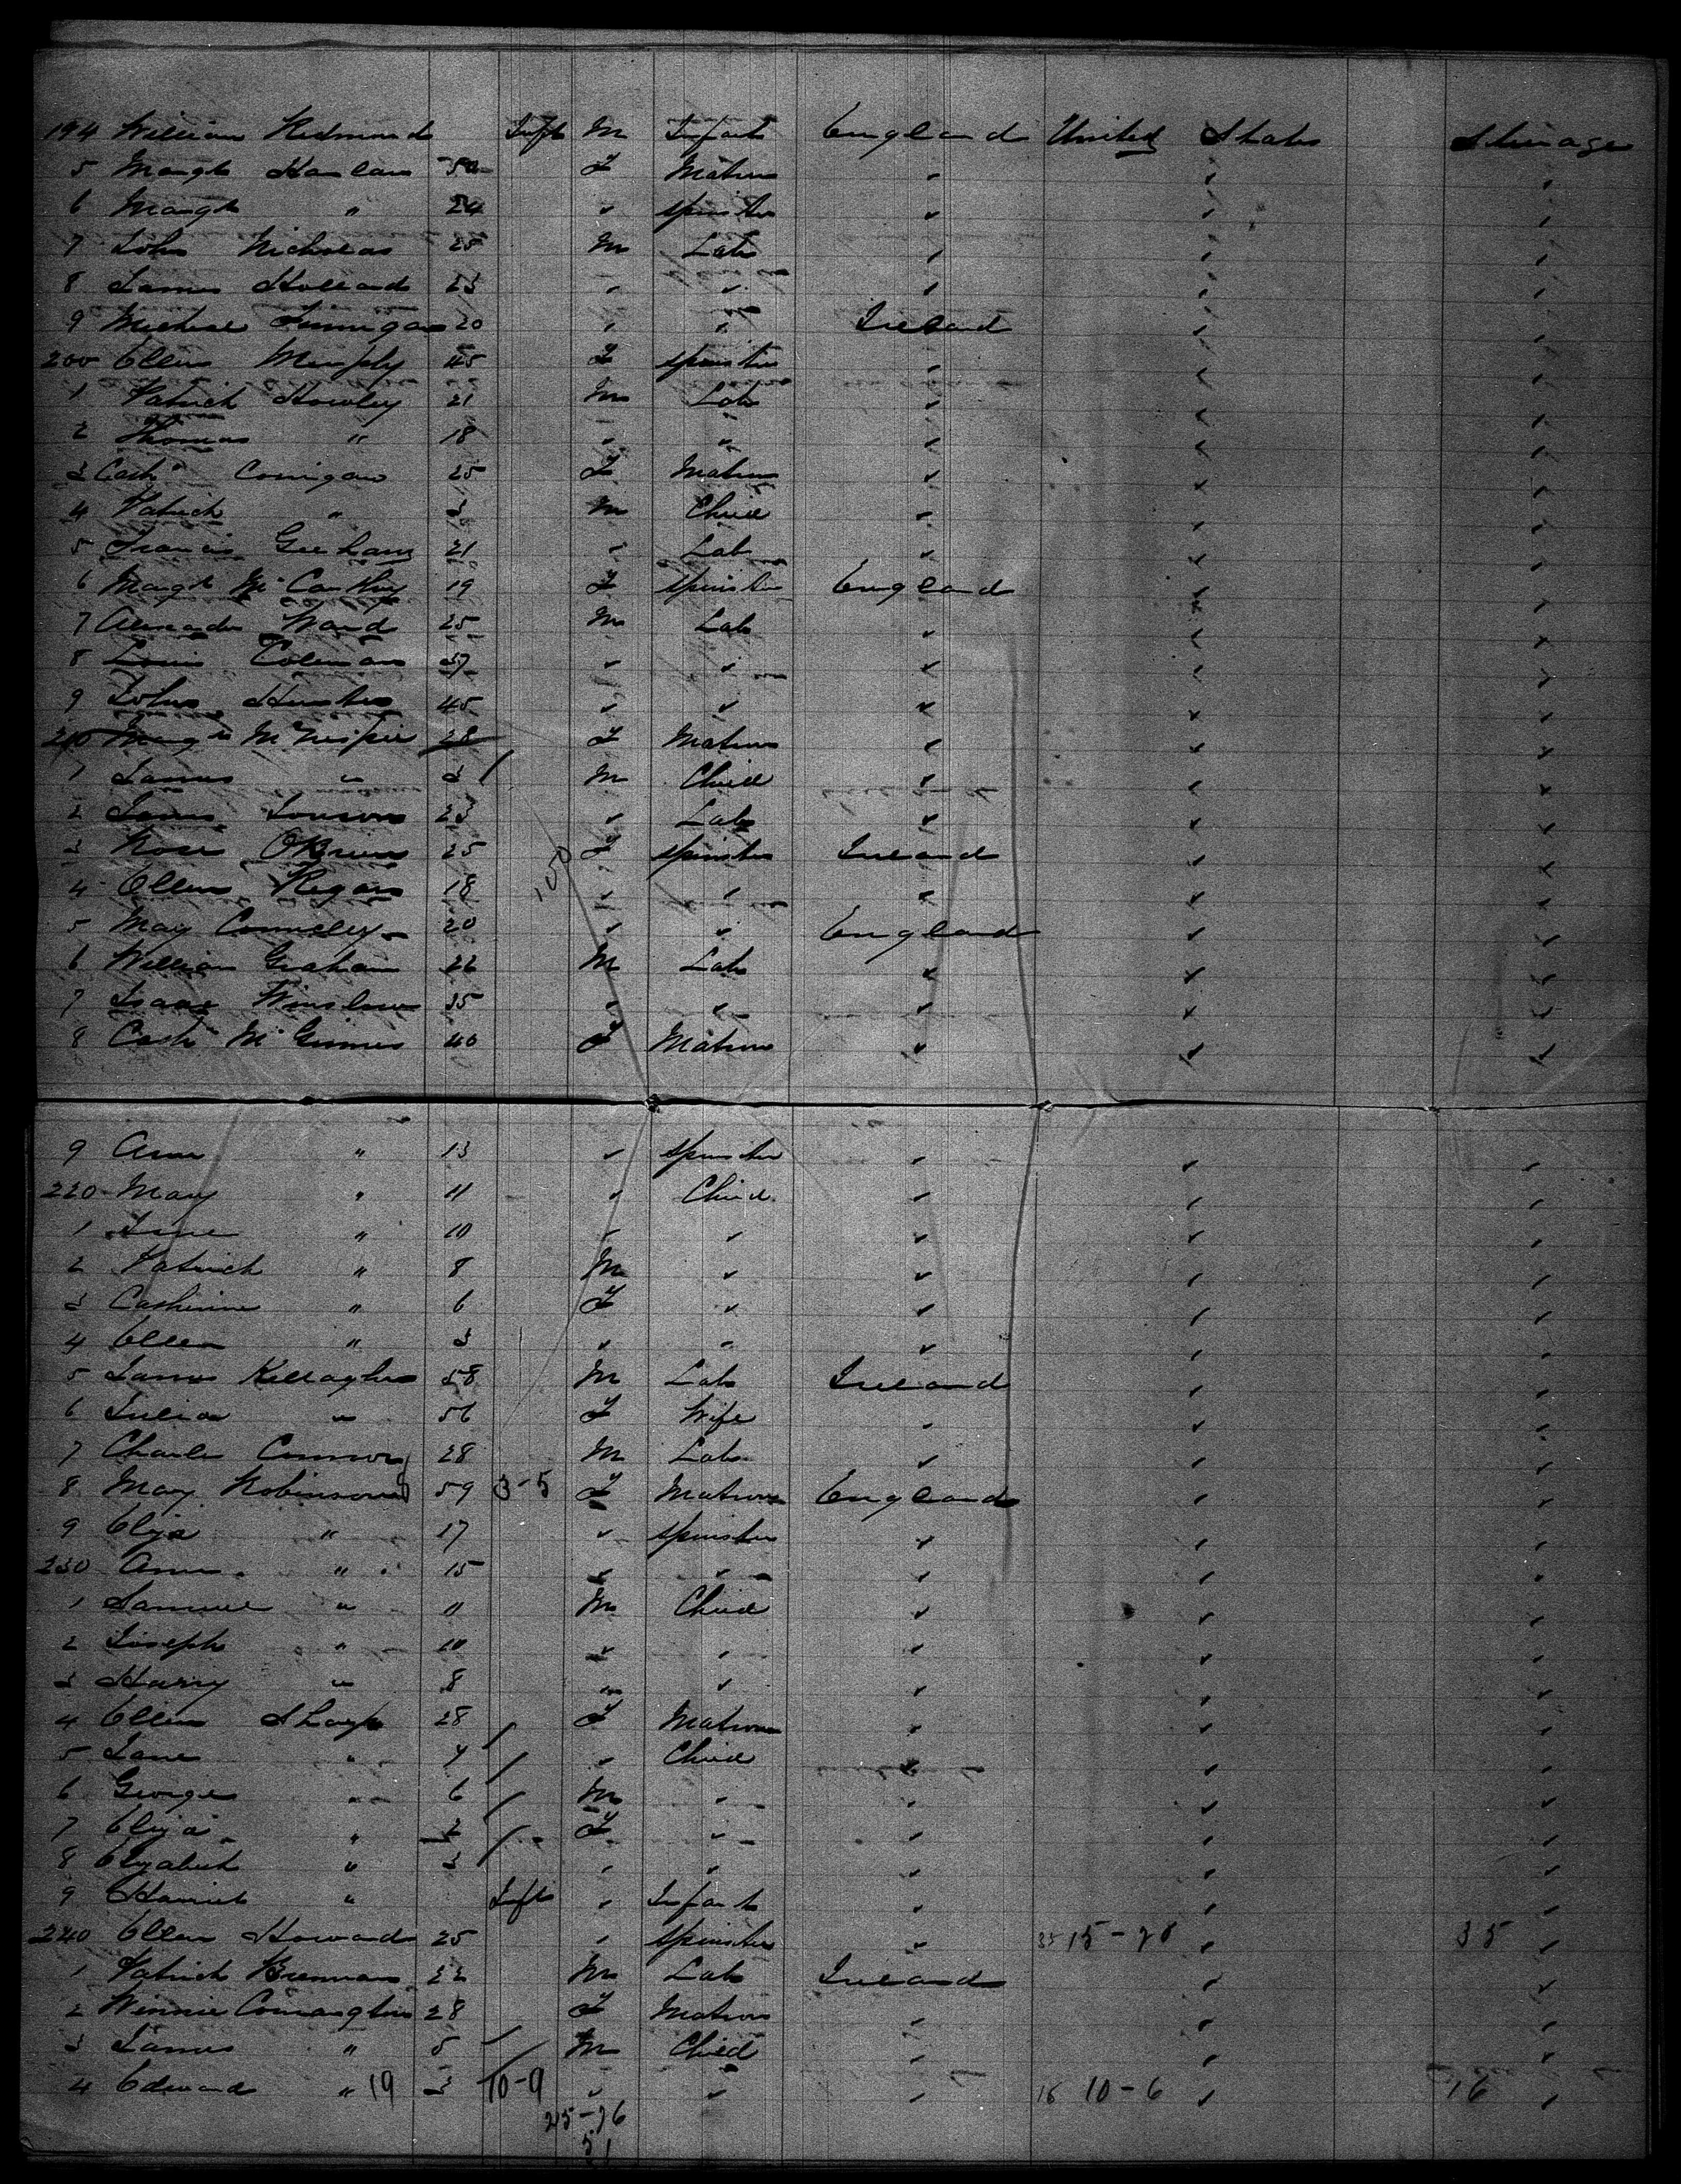 194 William Redmond Inft M Infant England United States Steerage
5 Margt Hanlan 50 F Matron " " "
6 Margt " 24 " Spinster " " "
7 John Nicholas 25 M Lab " " "
8 James Holland 23 " " " " "
9 Michael Finnigan 20 " " Ireland " "
200 Ellen Murphy 45 F Spinster " " "
1 Patrick Howley 21 M Lab " " "
2 Thomas " 18 " " " " "
3 Cath Corrigan 25 F Matron " " "
4 Patrick " 3 M Child " " "
5 Francis 21 " Lab " " "
6 Margt McCarthy 19 F Spinster England " "
7 Alexander Ward 25 M Lab " " "
8 Louis Coleman 37 " " " " "
9 John Hunter 45 " " " " "
210 Margt 28 F Matron " " "
1 James " 3 / M Child " " "
2 James 23 " Lab " " "
3 Rose OBrien 25 F Spinster Ireland " "
4 Ellen Regan 18 " " " " "
5 May Connelly 20 " " England " "
6 William Graham 22 M Lab " " "
7 Isaac Winslow 35 " " " " "
8 Cath McGinnes 40 F Matron " " "
9 Ann " 13 " Spinster " " "
220 Mary " 11 " Child " " "
1 Jane " 10 " " " " "
2 Patrick " 8 M " " " "
3 Catherine " 6 F " " " "
4 Ellen " 3 " " " " "
5 James Kellagher 58 M Lab Ireland " "
6 Julia " 56 F Wife " " "
7 Charles Connors 28 M Lab " " "
8 Mary Robinson 59 3-5 F Matron England " "
9 Eliza " 17 " Spinster " " "
230 Ann " 15 " " " " "
1 Samuel " 11 M Child " " "
2 Joseph " 10 " " " " "
3 Harry " 8 " " " " "
4 Ellen Sharp 28 / F Matron " " "
5 Jane " 7 / " Child " " "
6 George " 6 / M " " " "
7 Eliza " 2 / F " " " "
8 Elizabeth " 3 " " " " "
9 Harriet " Inft " Infant " " "
240 Ellen Howard 25 " Spinster " 35 15-20 " 35 "
1 Patrick Brennan 22 M Lab Ireland " "
2 Winnie 28 F Matron " " "
3 James " 5 / M Child " " "
4 Edward " 19 3 10-9 " " " 16 10-6 " 16 "
25-26
51
100